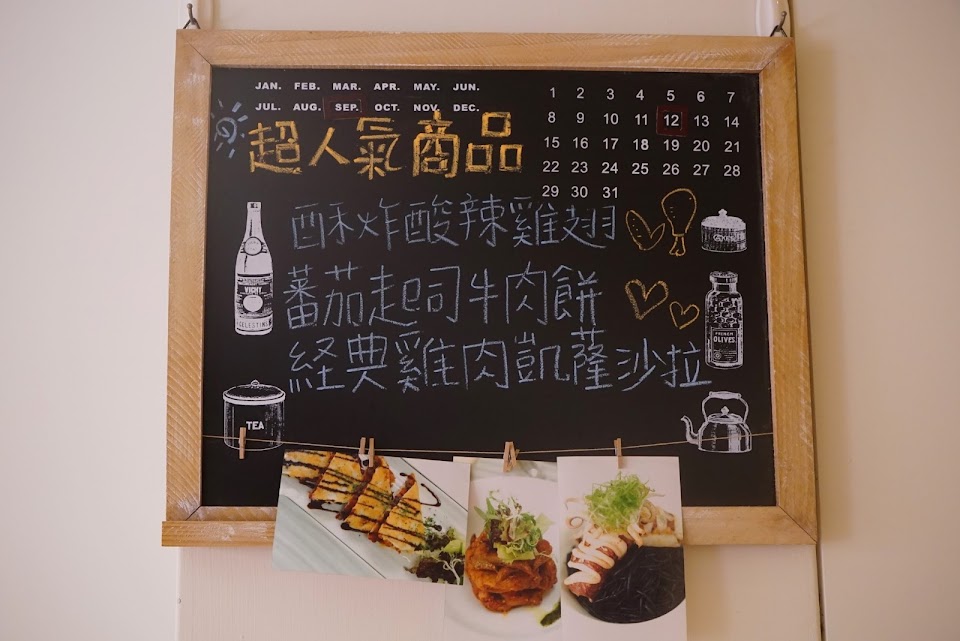 JAN. FEB. MAR. APR. MAY. JUN.
JUL. AUG. SEP. OCT. NOV. DEC.
1 2 3 4 5 6 7
8 9 10 11 12 13 14
15 16 17 18 19 20 21
22 23 24 25 26 27 28
29 30 31
超人氣商品
酥炸酸辣雞翅
蕃茄起司牛肉餅
経典雞肉凱薩沙拉
VICHY
CELESTINS
FRENCH
OLIVES
TEA